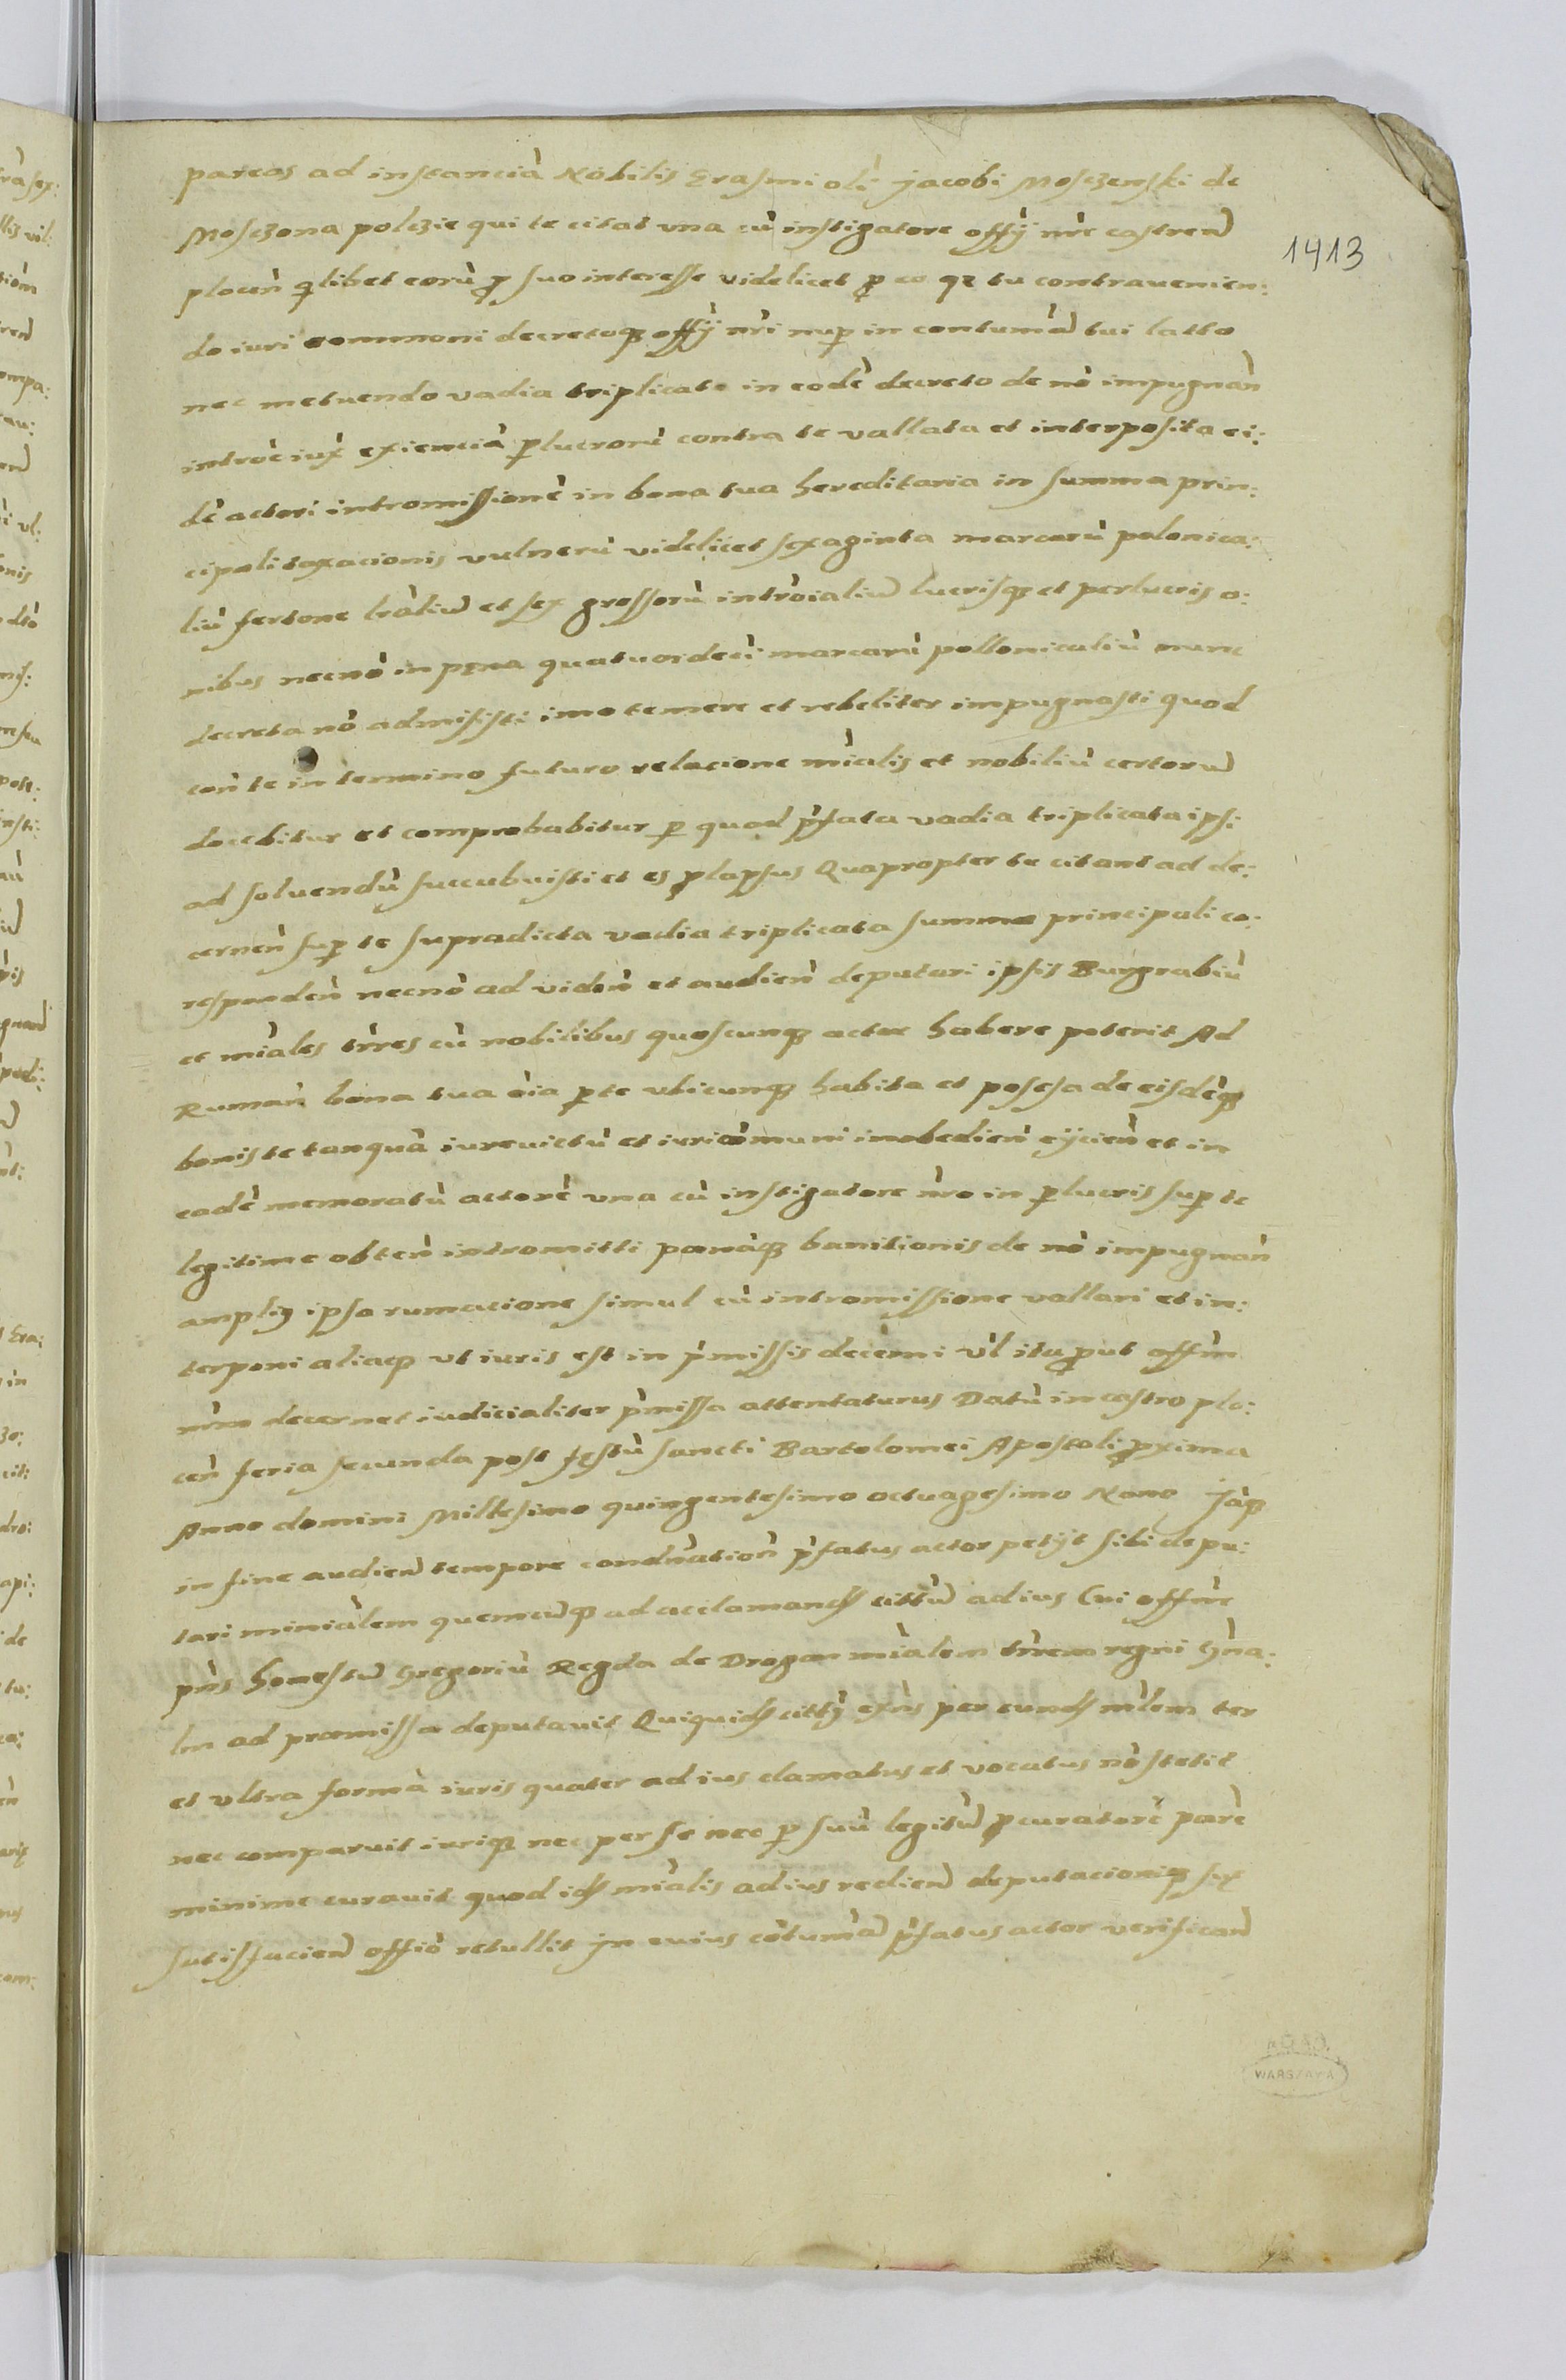 pareas ad instanciā Nobilis Erasmi oli Jacobi Mosczenski de
Mosczona polczie qui te citat vna cū instigatore offÿ nrē castren̄
1413
plocen̄ q̄libet eorū p̄ suo interesse videlicet p̄ eo qz tu contrauenien:
do iuri commoni decretoqz offÿ nr̄i nup̄ in contumā tui latto
nec metuendo vadia triplicata in eodē decreto de nō impugnan̄
intrōe iux̄ exienciā p̄lucronē contra te vallata et interposita ei:
dē actori intromissionē in bona tua hereditaria in summa prin:
cipali taxacionis vulnerū videlicet sexaginta marcarū polonica:
liū fertone lrāliū et sex grossorū intrōialiū lucrisqz et perlucris o:
nibus necnō in pęna quatuordeci marcarū polloniculiū nunc
decreta nō admisisti imo temere et rebeliter impugnasti quod
con̄ te in termino futuro relacione mīalis et nobiliū certorū
docebitur et comprobabitur p̄ quod p̄fata vadia triplicata ipsi
ad soluendū succubuisti et es p̄lapsus Quapropter te citant ad de:
cernen̄ sup̄ te supradicta vadia triplicata summa principali co:
responden̄ necnō ad viden̄ et audien̄ deputari ipsis Burgrabiū
et mīales trr̄es cū nobilibus quoscunqz actor habere poterit Ad
Ruman̄ bona tua oīa p̄ te vbicunqz habita et posesa de eisdēqz
bonis te tanquā iureuictū et iuri cōmuni inobedien̄ eÿcien̄ et in
eadē memoratū actorē vna cū instigatore nr̄o in p̄lucris sup̄ te
legitime obten̄ intromitti pœnāqz banitionis de nō impugnan̄
ampliꝰ ipsa rumacione simul cū intromissione vallari et in:
terponi aliaqz vt iuris est in p̄missis decerni vl̄ ita p̄ut offm̄
nr̄m decernet iudicialiter p̄missa attentaturus Datū in castro plo:
cen̄ feria secunda post fęstū sancti Bartolomei Apostoli p̄xima
Anno domini Millesimo quingentesimo octuagesimo Nono Jāqz
in fine audien̄ tempore condn̄ation̄ p̄fatus actor petÿt sibi depu:
tari miniālem quemcūqz ad acclamand cittū ad ius Cui offm̄
pn̄s honestū Gregoriū Regda de Drogan mīalem trr̄em regni gn̄a:
lm ad præmissa deputauit Quiquid cittÿ exn̄s per eund mlēm ter
et vltra formā iuris quater ad ius clamatus et vocatus nō stetit
nec comparuit iuriqz nec per se nec p̄ suū legitū p̄curatorē parē
minime curauit quod id mīalis ad ius redien̄ deputacioniqz sux
satisfacien̄ offiō retullit Jn cuius cōtumā p̄fatus actor verifican̄
WARSZAWA